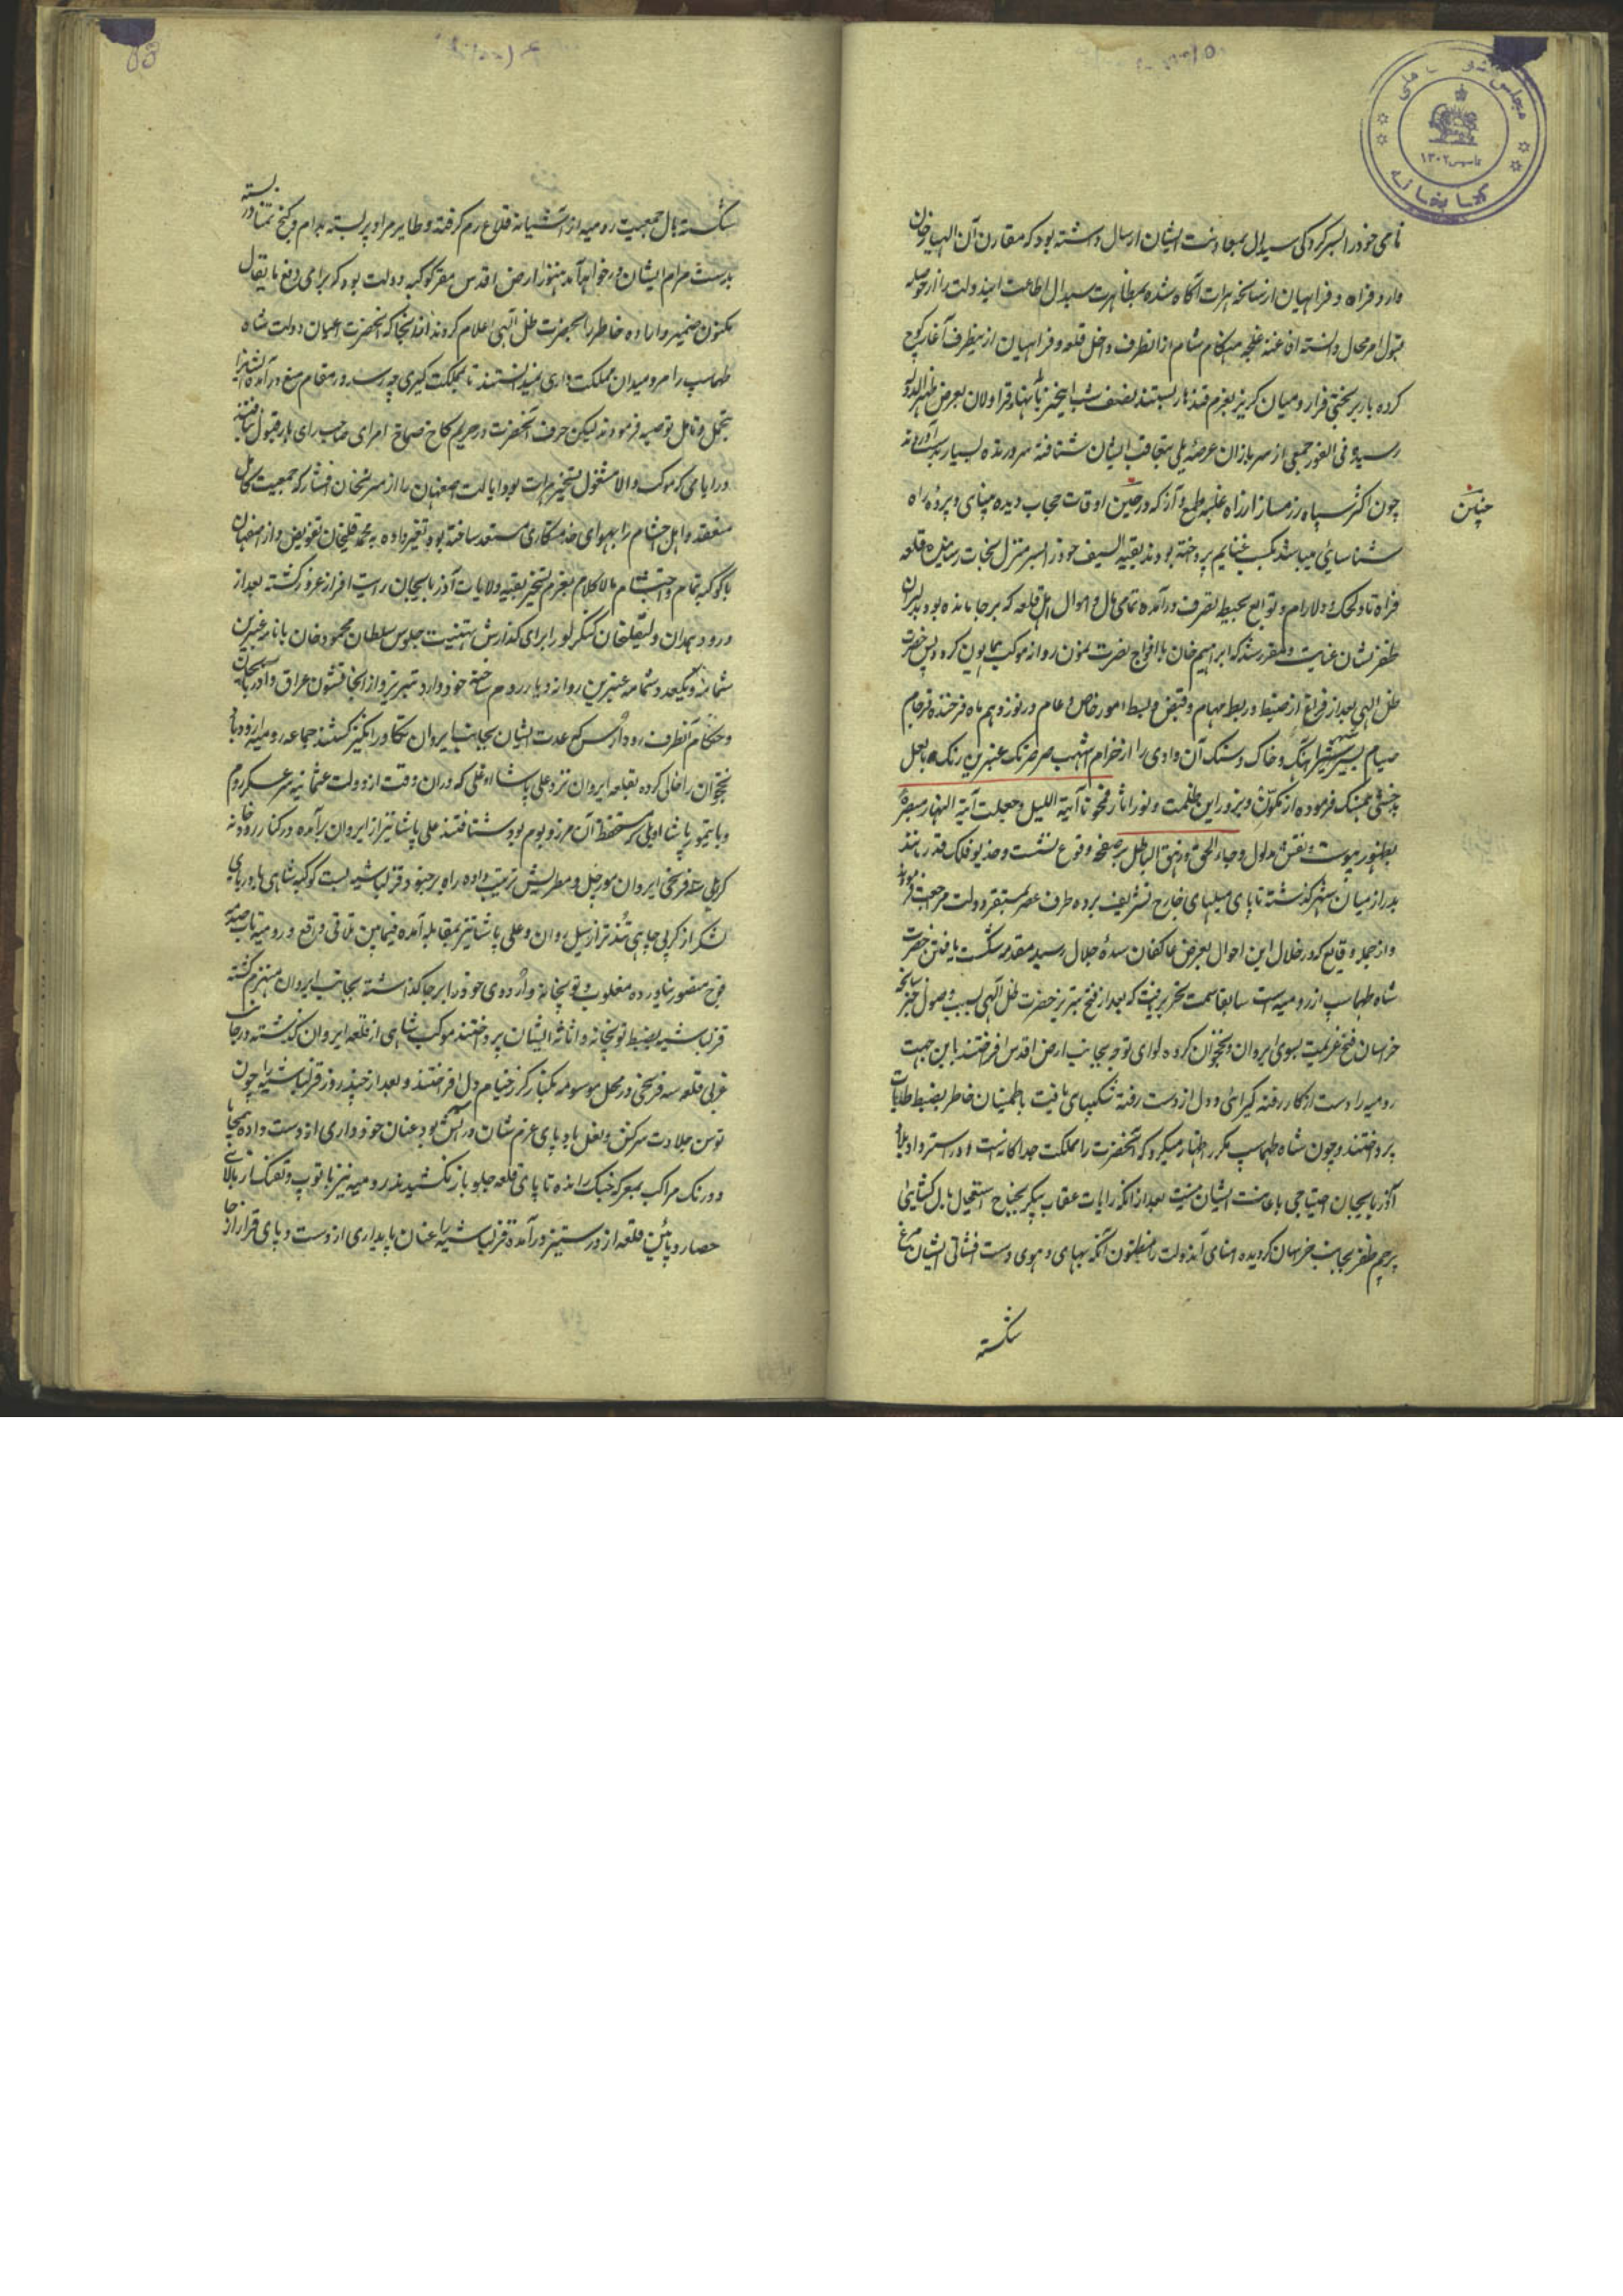 نامی خود را بسرکردگی سیدال بمعاونت ایشان ارسال داشته بود که مقارن آن الهیارخان
وارد فراه و فراهیان از سانحه هرات آگاه شده بمظاهرت سیدال اطاعت ایندولت را از حوصله
قبول امر محال دانسته افاغنه غلجه هنگام شام از انطرف داخل قلعه و فراهیان از ینطرف آغاز کوچ
کرده بار بر بختی فرار و میان گریز بعزم قندهار بستند نصف شب این خبر قراولان بعرض
رسیده فی الفور جمعی از سربازان عرصه یلی بتعاقب ایشان شتافته سر و زنده بسیار بدست آوردند
چون اکثر سپاه رزمساز از راه غلبه طمع و آز که در حین اوقات حجاب دیده بینای و پرده راه
چنین
شناسائی میباشد بکسب غنایم پرداخته بودند بقیه السیف خود را بسر منزل نجات رسانیده قلعه
فراه تا و دلارام و توابع بحیطه تصرف درآمده تمامی مال و اموال اهل قلعه که بر جا مانده بود بدلیران
ظفر نشان عنایت و مقرر شد که ابراهیم خان با افواج نصرت نمون روانه موکب همایون گردد پس حضرت
ظل الهی بعد از فراغ از ضبط و ربط مهام و قبض و بسط امور خاص و عام در نوزدهم ماه فرخنده فرجام
صیام بسیر شهر آهنگ و خاک و سنگ آن وادی را از خرام اشهب صرصرتک عنبرین رنگ با لعل
بدخشی همسنگ فرموده از تکون و بروز این ظلمت و نور آثار فمحونا آیة اللیل و جعلنا آیة النهار مبصرة
بظهور پیوست و نقش مدلول و جاء الحق و زهق الباطل بر صفحه وقوع نشست و خدیو فلک قدر مانند
بدر از میان شهر گذشته تا پای میلهای خارج تشریف برده طرف عصر بمستقر دولت مراجعت فرمودند
و از جمله وقایع که در خلال این احوال بعرض عاکفان سده جلال رسید مقدمه شکست یافتن حضرت
شاه طهماسب از رومیه است سابقا سمت تحریر یافت که بعد از فتح تبریز حضرت ظل الهی بسبب وصول خبر سانحه
خراسان فسخ عزیمت بسوی ایروان و نخجوان کرده لوای توجه بجانب ارض اقدس افراختند باین جهت
رومیه را دست از کار رفته گیرائی و دل از دست رفته شکیبای یافت باطمینان خاطر بضبط ولایات
پرداختند و چون شاه طهماسب مکرر اظهار میکرد که آنحضرت را مملکت جداگانه است و در استرداد بلاد
آذربایجان احتیاجی باعانت ایشان نیست بعد از انکه رایات عقاب پیکر بجناح استعجال بال گشای
پرچم ظفر بجانب خراسان گردیده امنای آندولت را مظنون آنکه بهای و هوی و دست فشانی ایشان مرغ
شکسته
شکسته بال جمعیت رومیه از آشیانه قلاع رم گرفته و طایر مراد پر بسته بدام و گنج تمنا در بسته
بدست مرام ایشان در خواهد آمد هنوز ارض اقدس مقر کوکبه دولت بود که برای دفع مایقال
مکنون ضمیر و اراده خاطر را بحضرت ظل الهی اعلام کردند از انجا که آنحضرت اعیان دولت شاه
طهماسب را مرد میدان مملکت داری نمیدانستند تا بمملکت گیری چه رسد در مقام منع در آمده ایشانرا
بتحمل و تامل توصیه فرمودند لیکن حرف آنحضرت در حریم کاخ صماخ امرای صاحب رای بار قبول نیافته
در ایامی که موکب والا مشغول تسخیر هرات بود ایالت اصفهان را از میر شخان افشار که جمعیت کامل
منعقد و اهل احشام را بهوای خدمتکاری مستعد ساخته بود تغییر داده به محمد قلیخان تفویض و از اصفهان
با کوکبه تمام و احتشام مالاکلام بعزم تسخیر بقیه ولایات آذربایجان رایت افراز عزو گشته بعد از
ورود بهمدان ولیقلیخان کنگرلو را برای گذارش تهنیت جلوس سلطان محمود خان با نامه عنبرین
شمامه و یکعدد شمامه عنبرین روانه دیار روم ساخته خود وارد تبریز و از انجا قشون عراق و آذربایجان
و حکام آنطرف رود ارس کم عدت ایشان بجانب ایروان تکاور انگیز گشتند جماعه رومیه از ورود با
نخجوان را خالی کرده بقلعه ایروان نزد علی پاشا اوغلی که دران وقت از دولت عثمانیه سرعسکر روم
و با تیمور پاشا اویلی مستحفظ آن مرز و بوم بود شتافتند علی پاشا نیز از ایروان برآمده در کنار رودخانه
کرنی سه فرسخی ایروان مورچل و مطریس ترتیب داده راه بر جنود قزلباشیه بست کوکبه شاهی با دریای
لشکر از کرپی چاهی تند تر از سیل روان و علی پاشا نیز بمقابله آمده فیمابین تلاقی واقع و رومیه تاب صدمه
فوج منصور نیاورده مغلوب و توپخانه و اردوی خود را بر جا گذاشته بجانب ایروان منهزم گشته
قزلباشیه بضبط توپخانه و اثاثه ایشان پرداختند موکب شاهی از قلعه ایروان گذشته در جانب
غربی قلعه سه فرسخی در محل موسوم به رکز خیام دل افراختند و بعد از چند روز قزلباشیه را چون
توسن جلادت سرکش و نعل باد پای عزم شان در آتش بود عنان خودداری از دست داده بیمحابا
و درنگ مراکب بمعرکه جنگ رانده تا پای قلعه جلو باز نکشیدند رومیه نیز با توپ و تفنگ از بالای
حصار و پائین قلعه از در ستیز درآمده قزلباشیه را عنان پایداری از دست و پای قرار از جا